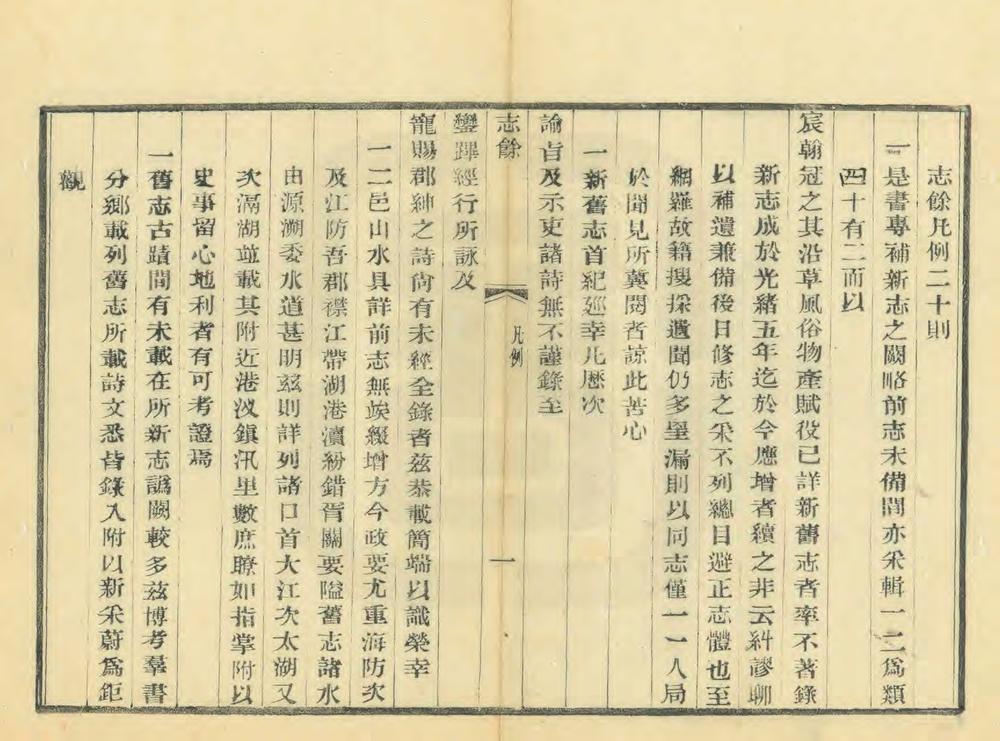 志餘凡例二十則
一是書專補新志之闕略前志未備間亦采輯一二爲類
四十有二而以
宸翰冠之其沿革風俗物產賦役已詳新舊志者率不著錄
新志成於光緒五年迄於今應增者續之非云糾謬聊
以補遺兼備後日修志之采不列總目避正志體也至
網羅故籍搜採遺聞仍多罣漏則以同志僅一一人局
於聞見所冀閱者諒此苦心
一新舊志首紀廵幸凡歷次
諭旨及示吏諸詩無不謹錄至
志餘
凡例
一
鑾蹕經行所詠及
寵賜郡紳之詩尚有未經全錄者兹恭載簡端以識榮幸
一二邑山水具詳前志無竢綴增方今政要尤重海防次
及江防吾郡襟江帶湖港瀆紛錯胥關要隘舊志諸水
由源溯委水道甚明兹則詳列諸口首大江次太湖又
次滆湖並載其附近港汊鎮汛里數庶瞭如指掌附以
史事留心地利者有可考證焉
一舊志古蹟間有未載在所新志譌闕較多兹博考羣書
分鄉載列舊志所載詩文悉皆錄入附以新采蔚爲鉅
觀